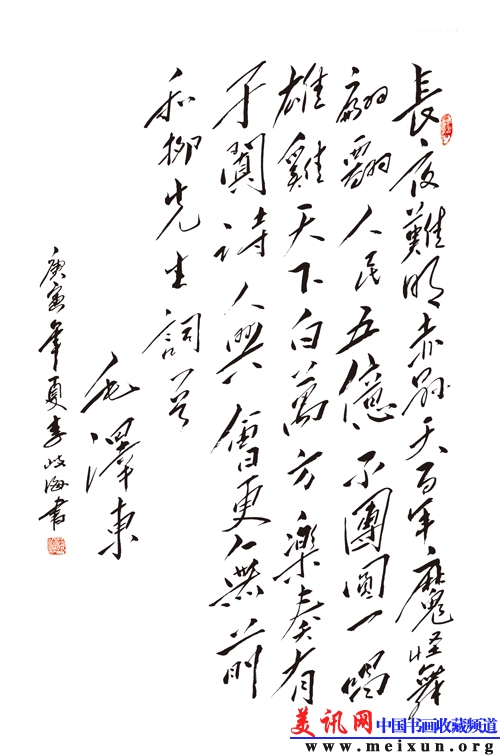 長夜難明赤縣天百年魔怪舞
翩翩人民五億不團圓一唱
雄雞天下白萬方樂奏有
于闐詩人興會更無前
和柳先生詞一首
毛澤東
庚寅年夏李岐海書
美讯网中国书画收藏频道
www.meixun.org